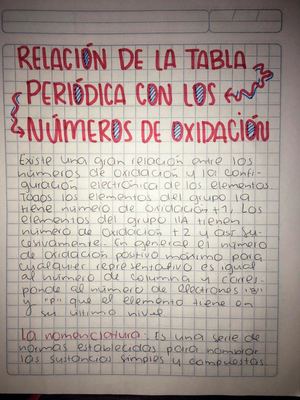 RELACIÓN DE LA TABLA
PERIÓDICA CON LOS
NÚMEROS DE OXIDACIÓN
Existe una gran relación entre los
números de oxidación y la confi-
guración electrónica de los elementos.
Todos los elementos del grupo 1A
tiene número de oxidación +1. Los
elementos del grupo 11A tienen
número de oxidación +2 y así su-
cesivamente. En general el número
de oxidación positivo máximo para
cualquier representativo es igual
al número de columna y corres-
ponde al número de electrones "s"
y "p" que el elemento tiene en
su último nivel
La nomenclatura: Es una serie de
normas establecidas para nombrar
las sustancias simples y compuestas.